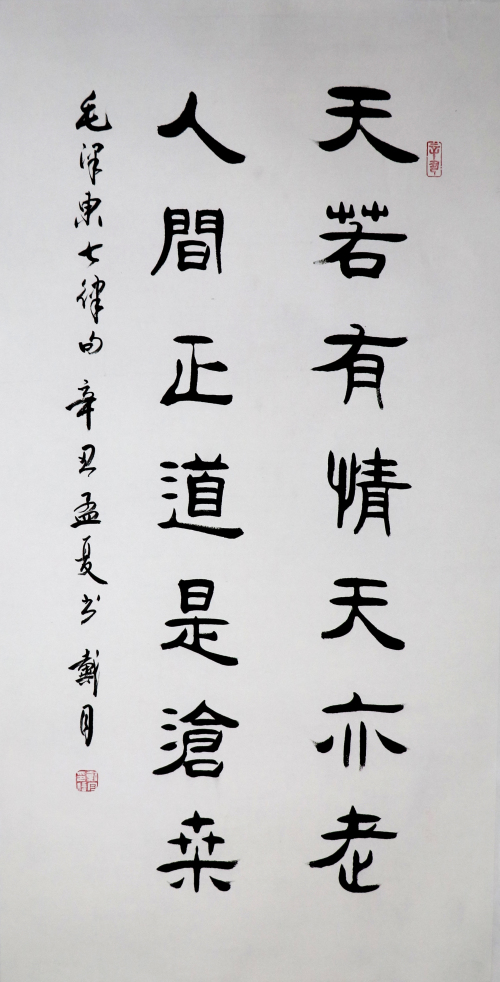 天若有情天亦老
人間正道是滄桒
毛泽东七律句 辛丑孟夏书 戴月